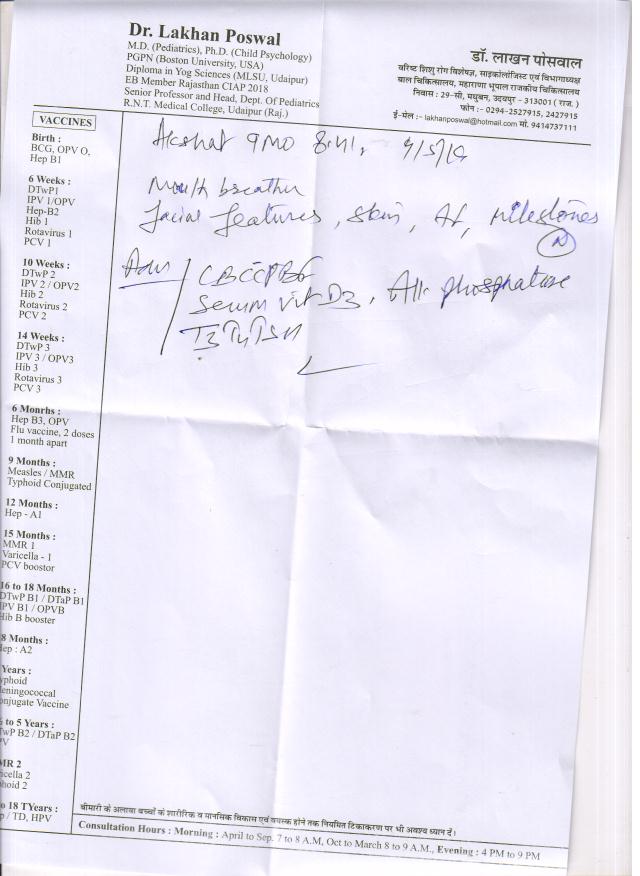 Dr. Lakhan Poswal
M.D. (Pediatrics), Ph.D. (Child Psychology)
PGPN (Boston University, USA)
Diploma in Yog Sciences (MLSU, Udaipur)
EB Member Rajasthan CIAP 2018
Senior Professor and Head, Dept. Of Pediatrics
R.N.T. Medical College, Udaipur (Raj.)
डॉ. लाखन पोसवाल
वरिष्ट शिशु रोग विशेषज्ञ, साइकोलॉजिस्ट एवं विभागाध्यक्ष
बाल चिकित्सालय, महाराणा भूपाल राजकीय चिकित्सालय
निवास : 29-सी, मधुबन, उदयपुर - 313001 ( राज. )
फोन :- 0294-2527915, 2427915
ई-मेल :- lakhanposwal@hotmail.com मो. 9414737111
VACCINES
Birth :
BCG, OPV O,
Hep B1
6 Weeks :
DTwP1
IPV 1/OPV
Hep-B2
Hib 1
Rotavirus 1
PCV 1
10 Weeks :
DTwP 2
IPV 2 / OPV2
Hib 2
Rotavirus 2
PCV 2
14 Weeks :
DTwP 3
IPV 3 / OPV3
Hib 3
Rotavirus 3
PCV 3
6 Monrhs :
Hep B3, OPV
Flu vaccine, 2 doses
1 month apart
9 Months :
Measles / MMR
Typhoid Conjugated
12 Months :
Hep - A1
15 Months :
MMR 1
Varicella - 1
PCV boostor
16 to 18 Months :
DTwP B1 / DTaP B1
IPV B1 / OPVB
Hib B booster
8 Months :
ep : A2
Years :
yphoid
eningococcal
onjugate Vaccine
to 5 Years :
TwP B2 / DTaP B2
PV
MR 2
ricella 2
phoid 2
o 18 TYears :
p / TD, HPV
Akshat 9 MO
Mouth breather
Facial features, skin, AF, milestones
N
Adv
Serum vit D3, Alk phosphatase
T3 T4 TSH
बीमारी के अलावा बच्चों के शारीरिक व मानसिक विकास एवं वयस्क होने तक नियमित टिकाकरण पर भी अवश्य ध्यान दें।
Consultation Hours : Morning : April to Sep. 7 to 8 A.M, Oct to March 8 to 9 A.M., Evening : 4 PM to 9 PM